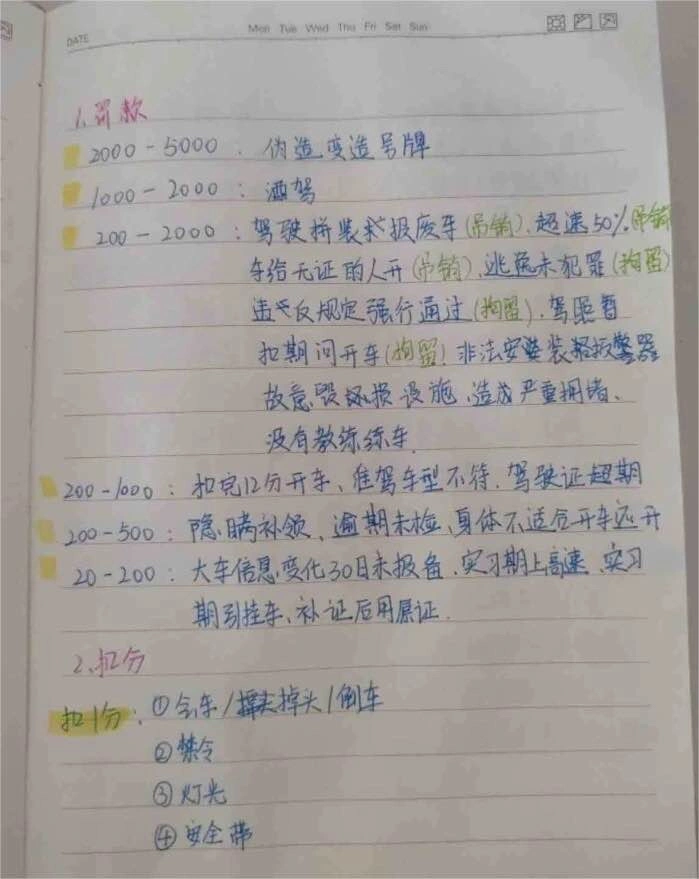 DATE
Mon Tue Wed Thu Fri Sat Sun
1. 罚款
2000-5000：伪造变造号牌
1000-2000：酒驾
200-2000：驾驶拼装或报废车(吊销)、超速50%吊销
车给无证的人开(吊销)、逃逸未犯罪(拘留)
违反规定强行通过(拘留)、驾照暂
扣期间开车(拘留)、非法安装报警器
故意毁坏损设施、造成严重拥堵、
没有教练练车
200-1000：扣完12分开车、准驾车型不符、驾驶证超期
200-500：隐瞒补领、逾期未检、身体不适合开车还开
20-200：大车信息变化30日未报备、实习期上高速、实习
期引挂车、补证后用原证.
2、扣分
扣1分：①会车/掉头/倒车
②禁令
③灯光
④安全带